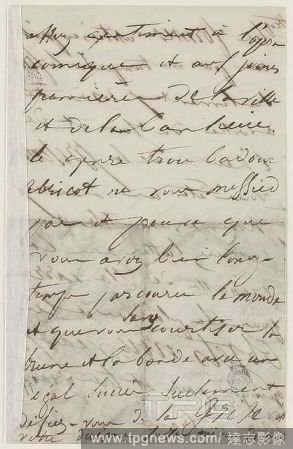 allez gentiment à l'opéra
comique et aux
premières de la ville
et de la banlieue.
le genre troubadour
abricot ne vous messied
pas et pense que
vous avez bien long-
temps parcouru le monde
et que vous courtisez la
brune et la blonde avec un
égal succès. Seulement
défiez-vous de la
votre
www.tpgnews.com / 達志影像